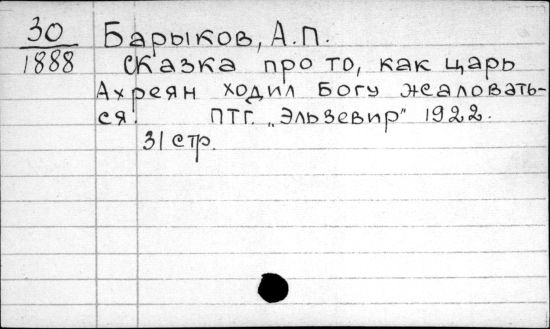 30
1888
Барыков, А.П.
Сказка про то, как царь
Ахреян ходил Богу жаловать-
ся. ПТГ. „Эльзевир" 1922.
31 стр.